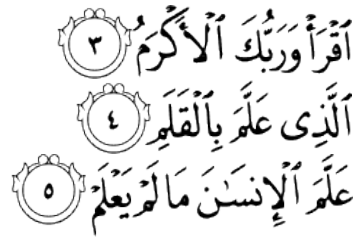 ٱقۡرَأۡ وَرَبُّكَ ٱلۡأَكۡرَمُ ٣
ٱلَّذِى عَلَّمَ بِٱلۡقَلَمِ ٤
عَلَّمَ ٱلۡإِنسَٰنَ مَا لَمۡ يَعۡلَمۡ ٥